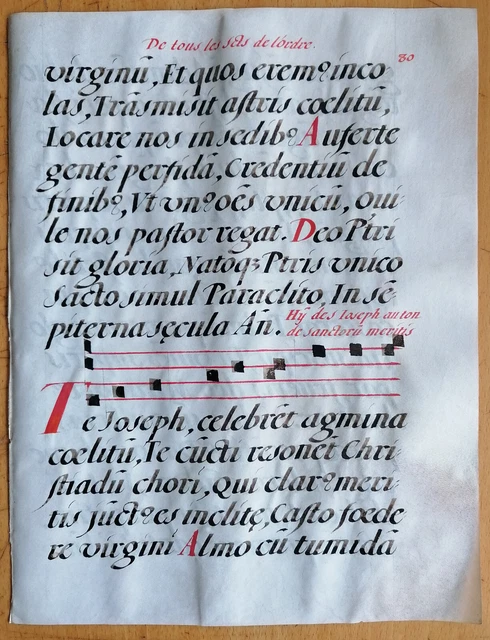 De tous les Scts de l'ordre.
80
virginū, Et quos eremꝰ inco
las, Trāsmisit astris cœlitū,
Locare nos in sedibꝰ Auferte
gentē perfidā, Credentiū de
finibꝰ, Vt vnꝰ oēs vnicū, Oui
le nos pastor regat. Deo Ptri
sit gloria, Natoqꝫ Ptris vnico
Sācto simul Paraclito, In sē-
piterna sęcula Ān. Hȳ des Ioseph au ton
de sanctorū meritis
Te Joseph, celebrēt agmina
cœlitū, Te cūcti resonēt Chri-
stiadū chori, Qui clarꝰ meri-
tis jūctꝰ es inclitę, Casto fœde
re virgini Almo cū tumidā